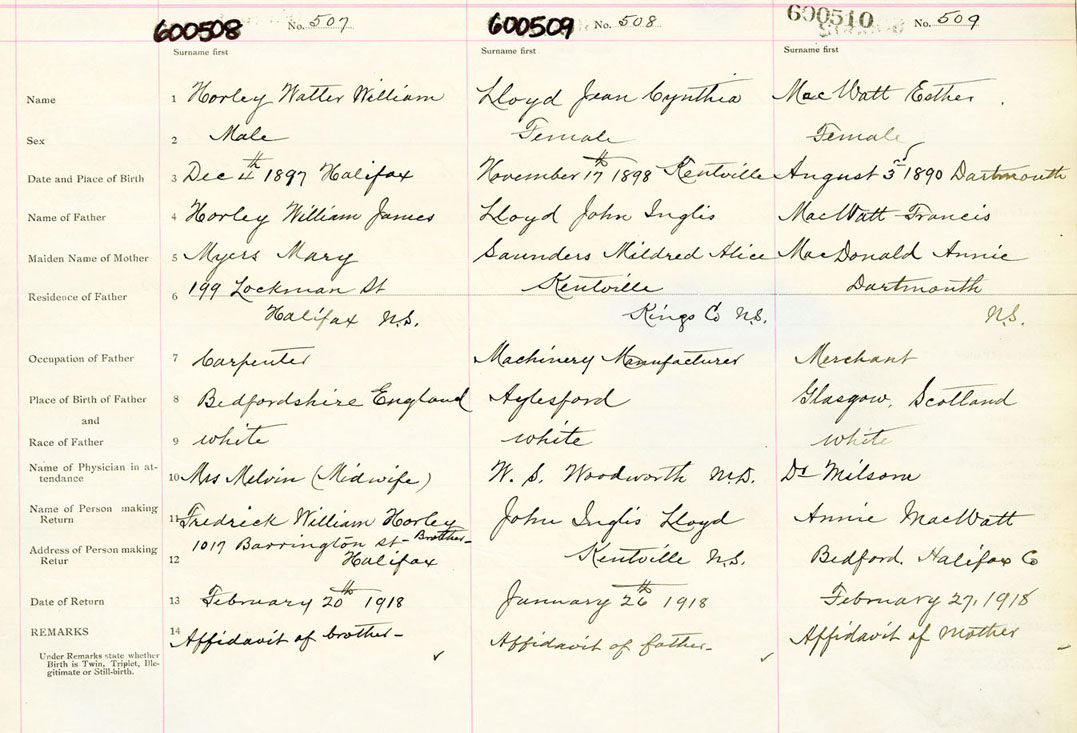 600508 No. 507 600509 No. 508 600510 No. 509
Surname first Surname first Surname first
Name 1 Horley Walter William Lloyd Jean Cynthia MacWatt Esther
Sex 2 Male Female Female
Date and Place of Birth 3 Dec 4th 1897 Halifax November 17th 1898 Kentville August 3rd 1890 Dartmouth
Name of Father 4 Horley William James Lloyd John Inglis MacWatt Francis
Maiden Name of Mother 5 Myers Mary Saunders Mildred Alice MacDonald Annie
Residence of Father 6 199 Lockman St Kentville Dartmouth
Halifax N.S. Kings Co N.S. N.S.
Occupation of Father 7 Carpenter Machinery Manufacturer Merchant
Place of Birth of Father 8 Bedfordshire England Aylesford Glasgow, Scotland
and
Race of Father 9 white white white
Name of Physician in at-
tendance 10 Mrs Melvin (Midwife) W. S. Woodworth M.D. Dr Milsom
Name of Person making
Return 11 Fredrick William Horley John Inglis Lloyd Annie MacWatt
Address of Person making 1017 Barrington St - Brother - Kentville N.S. Bedford, Halifax Co
Retur 12 Halifax
Date of Return 13 February 20th 1918 January 26th 1918 February 27, 1918
REMARKS 14 Affidavit of brother - Affidavit of father - Affidavit of Mother
Under Remarks state whether
Birth is Twin, Triplet, Ille-
gitimate or Still-birth.